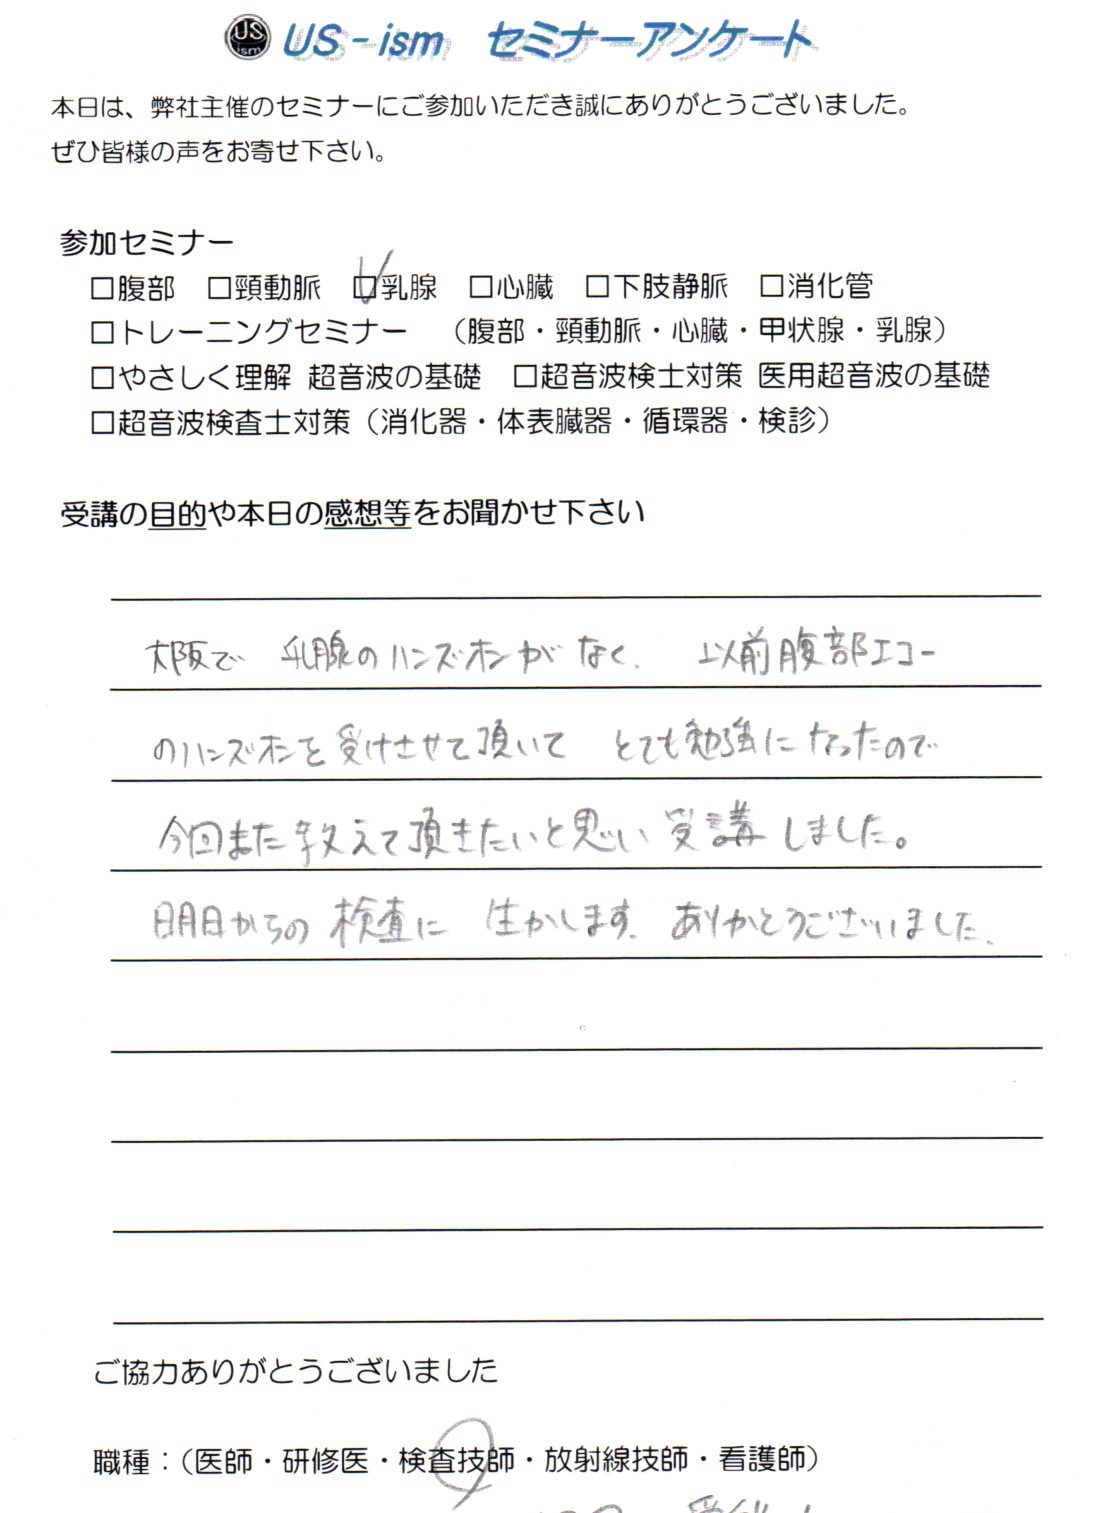 US ism US-ism セミナーアンケート
本日は、弊社主催のセミナーにご参加いただき誠にありがとうございました。
ぜひ皆様の声をお寄せ下さい。
参加セミナー
□腹部 □頸動脈 ☑乳腺 □心臓 □下肢静脈 □消化管
□トレーニングセミナー （腹部・頸動脈・心臓・甲状腺・乳腺）
□やさしく理解 超音波の基礎 □超音波検士対策 医用超音波の基礎
□超音波検査士対策（消化器・体表臓器・循環器・検診）
受講の目的や本日の感想等をお聞かせ下さい
大阪で 乳腺のハンズオンがなく、 以前腹部エコー
のハンズオンを受けさせて頂いて とても勉強になったので
今回また教えて頂きたいと思い 受講しました。
明日からの検査に 生かします。ありがとうございました。
ご協力ありがとうございました
職種：（医師・研修医・検査技師・放射線技師・看護師）